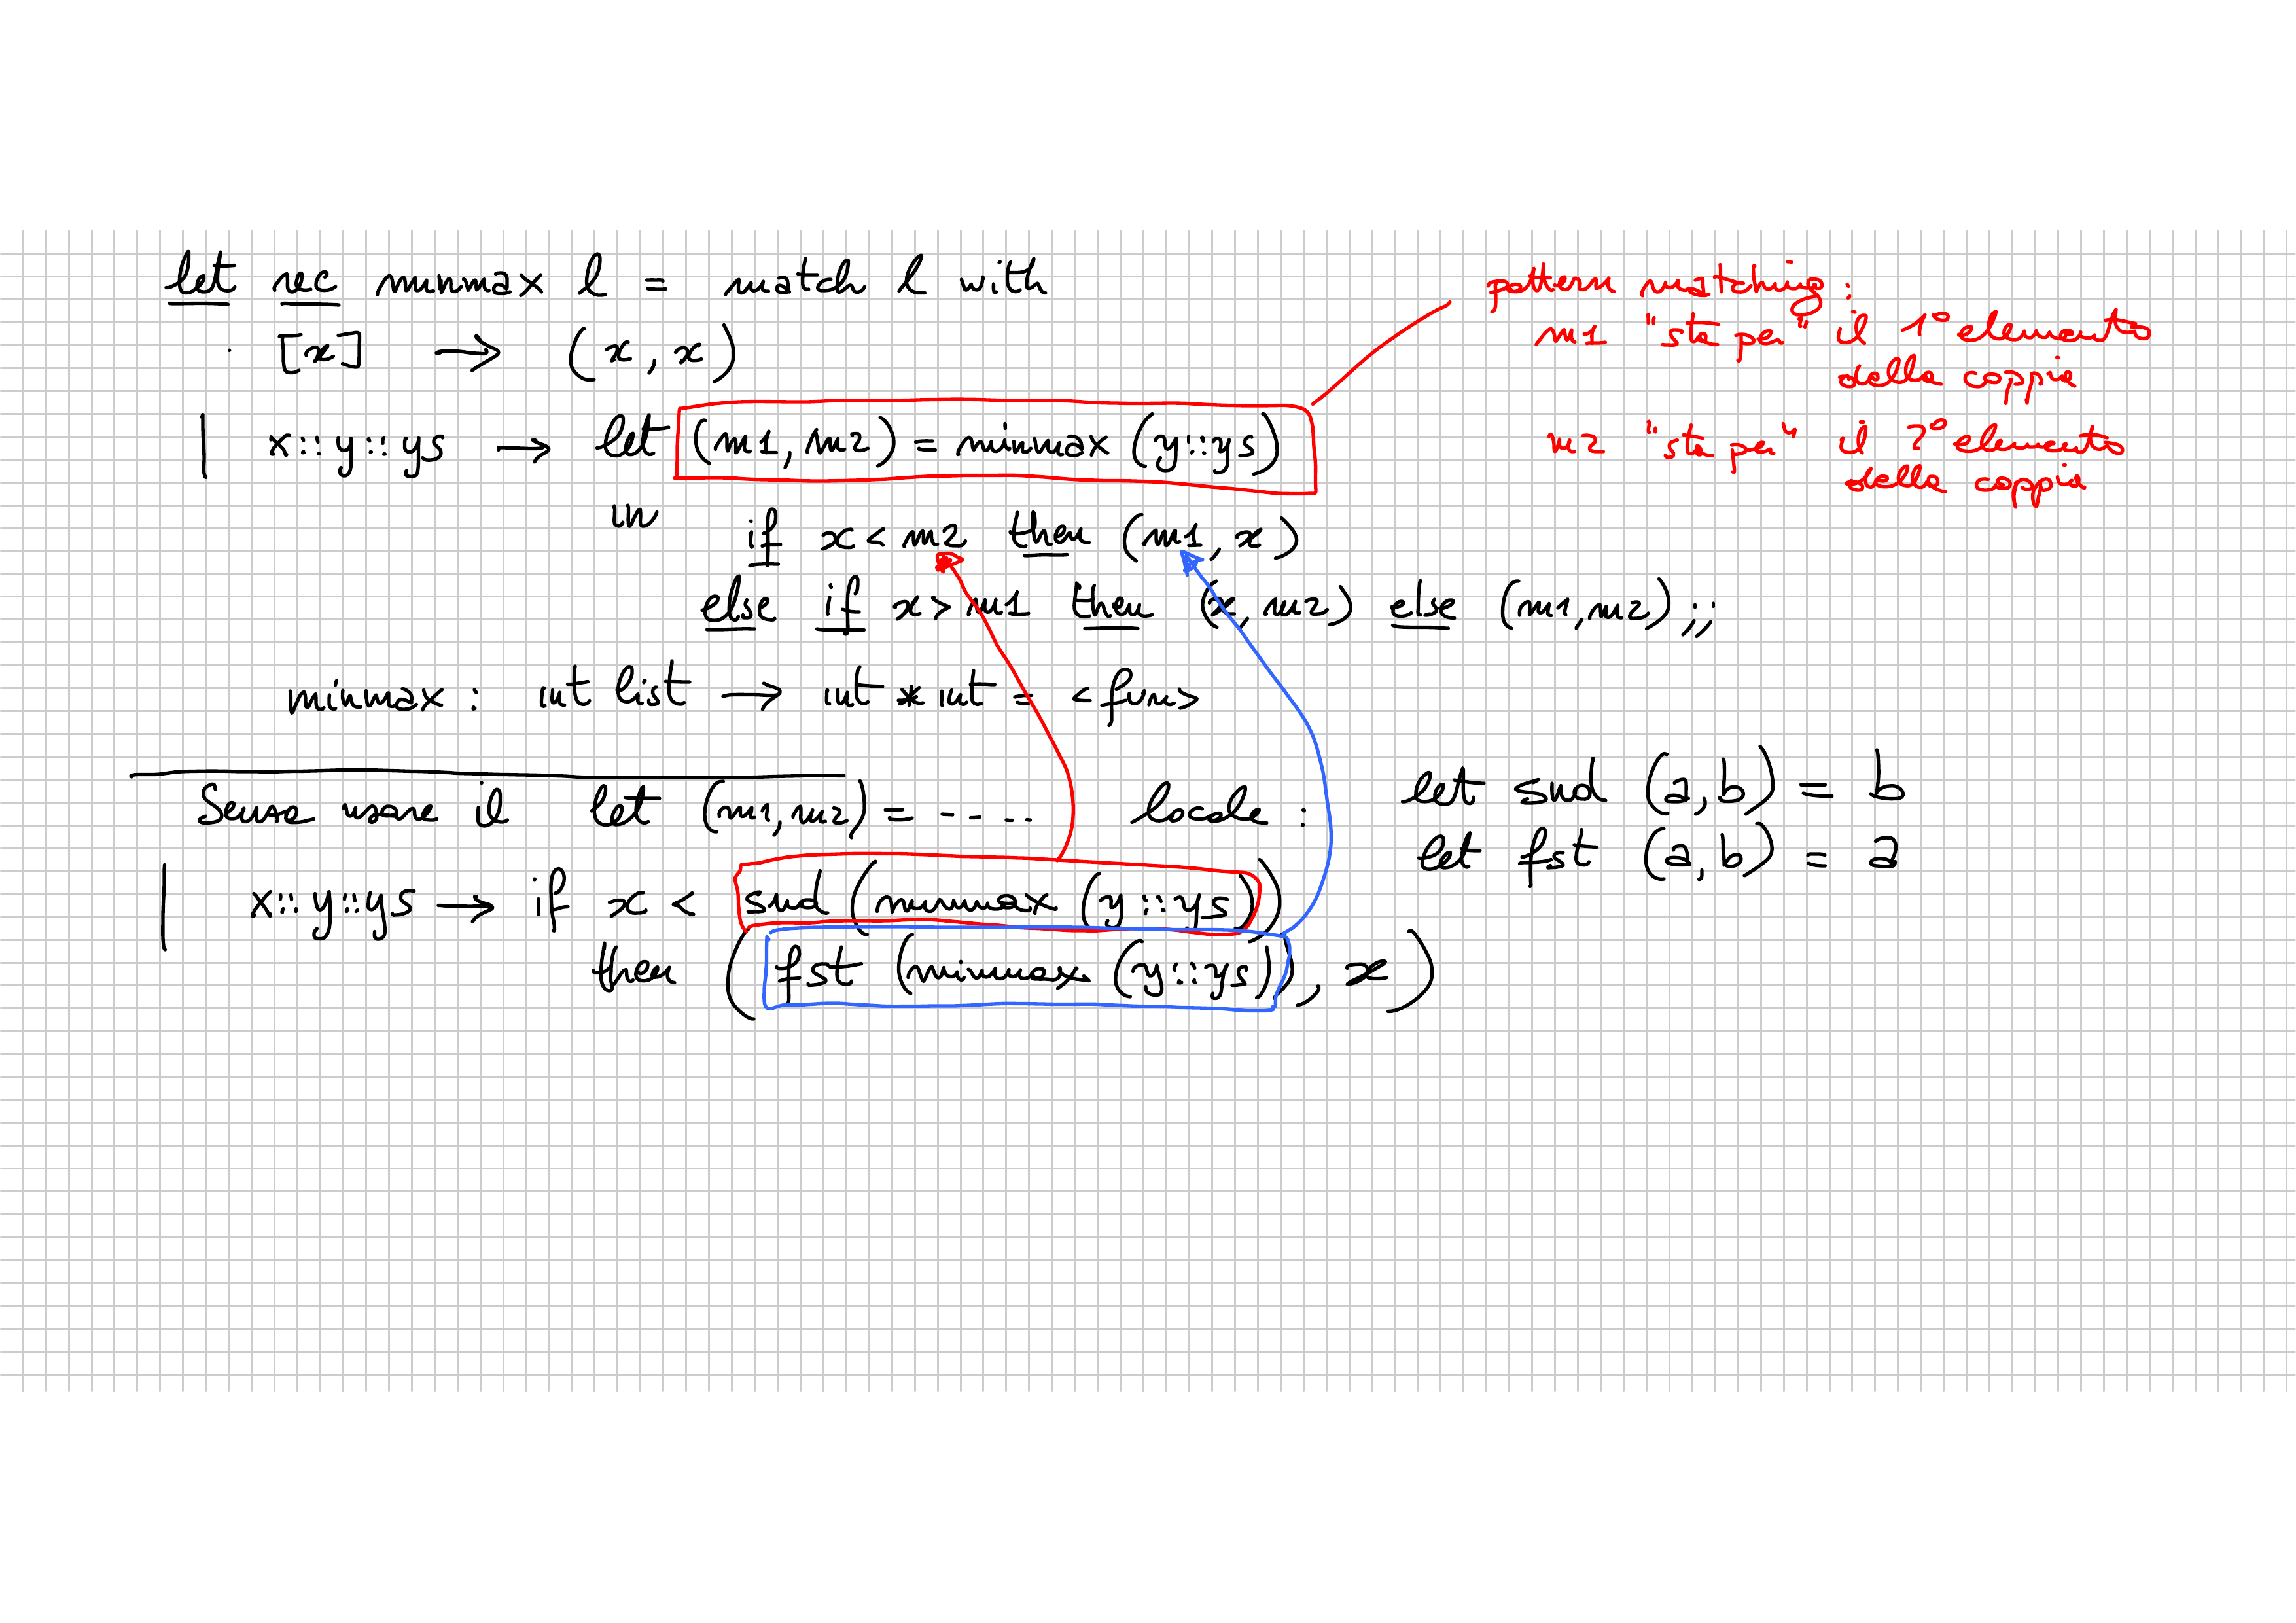 let rec minmax l = match l with
[x] → (x, x)
| x::y::ys → let (m1, m2) = minmax (y::ys)
in if x < m2 then (m1, x)
else if x > m1 then (x, m2) else (m1, m2);;
minmax : int list → int * int = <fun>
pattern matching :
m1 "sta per" il 1° elemento
della coppia
m2 "sta per" il 2° elemento
della coppia
Senza usare il let (m1, m2) = ----- locale :
| x::y::ys → if x < snd (minmax (y::ys))
then (fst (minmax (y::ys)), x)
let snd (a, b) = b
let fst (a, b) = a